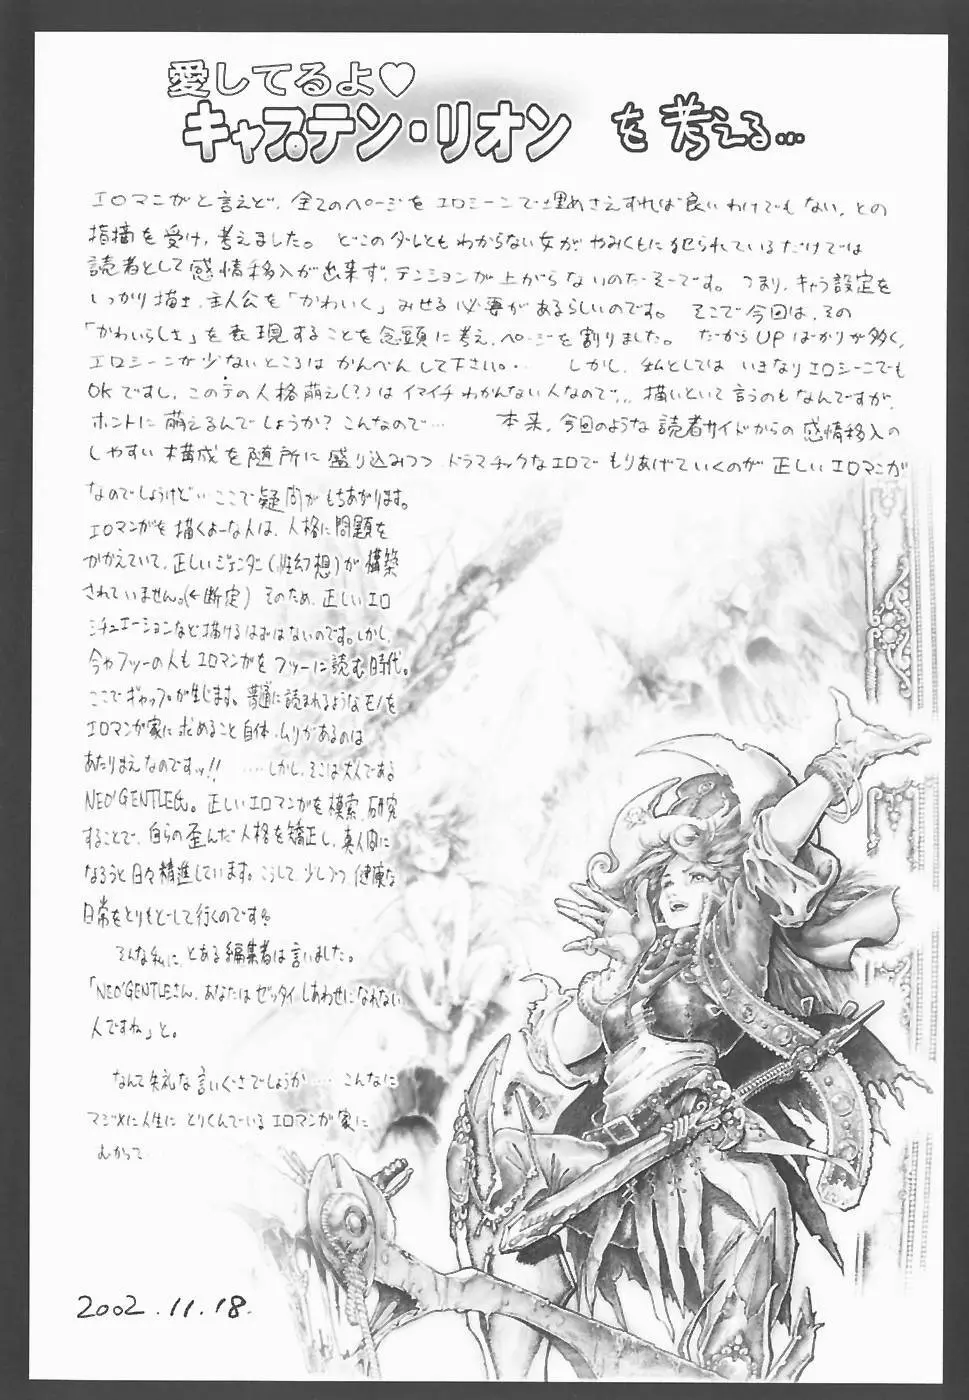 愛してるよ♡
キャプテン・リオン を考える…
エロマンガと言えど、全てのページをエロシーンで埋めさえすれば良いわけでもない、との
指摘を受け、考えました。 どこのダレともわからない女がやみくもに犯られているだけでは
読者として感情移入が出来ず、テンションが上がらないのだそーです。つまり、キャラ設定を
しっかり描き、主人公を「かわいく」みせる必要があるらしいのです。 そこで今回は、その
「かわいらしさ」を表現することを念頭に考え、ページを割りました。 だからUPばかりが多く、
エロシーンが少ないところはかんべんして下さい。… しかし、私としてはいきなりエロシーンでも
OKですし、この手の人格萌え(?)はイマイチわかんない人なので… 描いといて言うのもなんですが、
ホントに萌えるんでしょうか?こんなので… 本来、今回のような読者サイドからの感情移入の
しやすい構成を随所に盛り込みつつ、ドラマチックなエロでもりあげていくのが正しいエロマンガ
なのでしょうけど… ここで疑問がもちあがります。
エロマンガを描くよーな人は、人格に問題を
かかえていて、正しいジェンダー(性幻想)が構築
されていません。(←断定) そのため、正しいエロ
シチュエーションなど描けるはずはないのです。しかし、
今やフツーの人もエロマンガをフツーに読む時代。
ここでギャップが生じます。普通に読まれるようなモノを
エロマンガ家に求めること自体、ムリがあるのは
あたりまえなのですッ!! ……しかし、そこは大人である
NEO'GENTLE氏。正しいエロマンガを模索、研究
することで、自らの歪んだ人格を矯正し、真人間に
なろうと日々精進しています。こうして、少しづつ健康な
日常をとりもどして行くのです。
そんな私に、とある編集者は言いました。
「NEO'GENTLEさん、あなたはゼッタイしあわせになれない
人ですね」と。
なんて失礼な言いぐさでしょうか…… こんなに
マジメに人生にとりくんでいるエロマンガ家に
むかって…
2002.11.18.